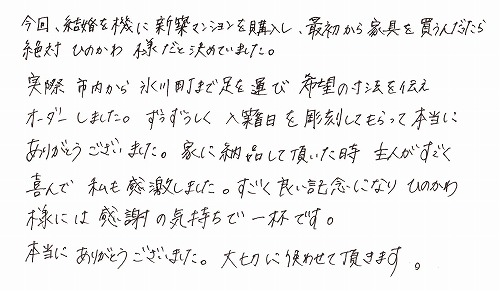 今回、結婚を機に新築マンションを購入し、最初から家具を買うんだったら
絶対 ひのかわ 様だと決めていました。
実際 市内から 氷川町まで足を運び 希望の寸法を伝え
オーダーしました。ずうずうしく 入籍日を彫刻してもらって本当に
ありがとうございました。家に納品して頂いた時 主人がすごく
喜んで 私も感激しました。すごく良い記念になり ひのかわ
様には 感謝の気持ちで一杯です。
本当に ありがとうございました。大切に使わせて頂きます。